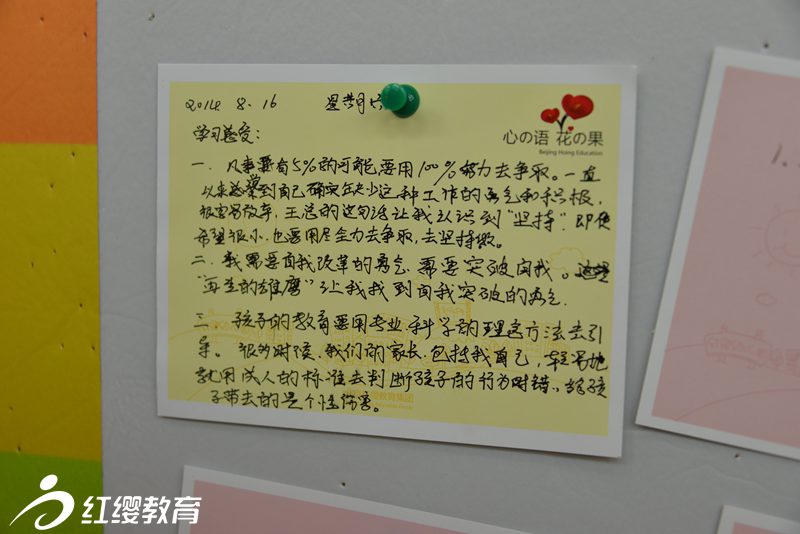 2014 8.16 星期六
心の语 花の果
Beijing Hoing Education
学习感受：
一、凡事要有5%的可能要用100%努力去争取。一直
以来感觉到自己确实缺少这种工作的勇气和积极，
很容易放弃，王总的这句话让我认识到“坚持”.即使
希望很小.也要用尽全力去争取,去坚持做。
二.我需要自我改革的勇气.需要突破自我。这里
“再生的雄鹰”让我找到自我突破的勇气.
三.孩子的教育要用专业.科学的理念方法去引
导。很多时候.我们的家长.包括我自己，轻易地
就用成人的标准去判断孩子的行为对错、给孩
子带去的是个性伤害。
教育集团
1.
红缨教育